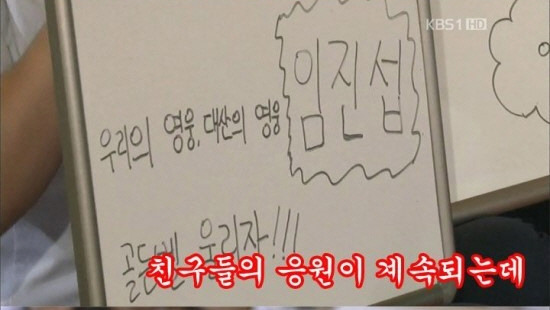 KBS1 HD
임진섭
우리의 영웅, 대산의 영웅
골든벨 우리자!!!
친구들의 응원이 계속되는데